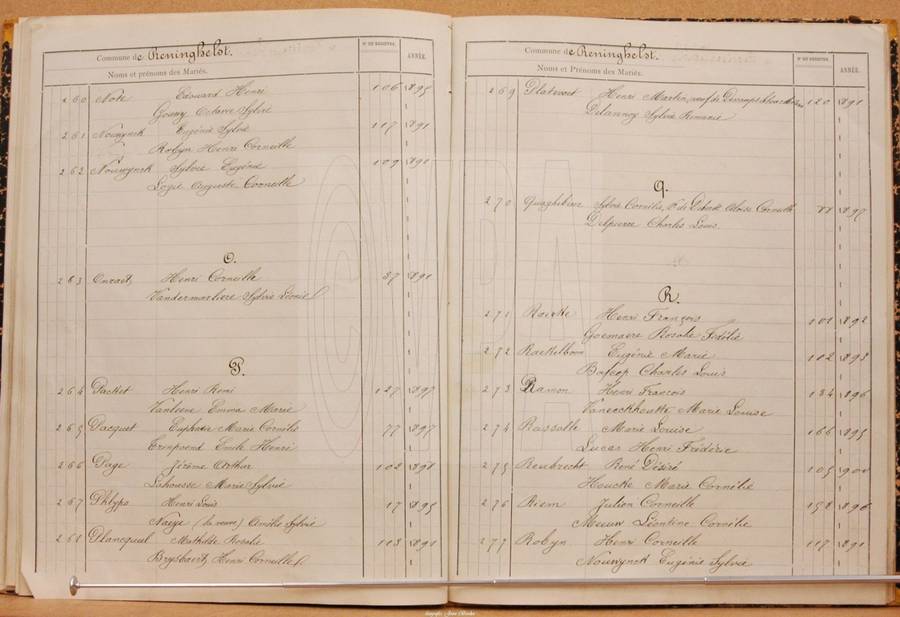 Commune de Reninghelst.
Noms et prénoms des Mariés.
N° DU REGISTRE.
ANNÉE.
260 Note Edouard Henri 106 1895
Gouny Octavie Sylvie
261 Nouwynck Eugénie Sylvie 117 1891
Robyn Henri Corneille
262 Nouwynck Sylvie Eugénie 109 1891
Logie Auguste Corneille
O.
263 Onraet Henri Corneille 87 1891
Vandermarliere Sylvie Léonie
P.
264 Packet Henri Remi 127 1897
Vanleene Emma Marie
265 Pacquet Marie Cornélie 77 1897
Emile Henri
266 Page Jérôme Arthur 102 1891
Lahousse Marie Sylvie
267 Phlyps Henri Louis 17 1895
Naeye (la veuve) Amélie Sylvie
268 Plancqueel Mathilde Rosalie 103 1891
Brysbaert Henri Corneille
Commune de Reninghelst.
Noms et Prénoms des Mariés.
N° DU REGISTRE.
ANNÉE.
269 Platevoet Henri Martin, veuf de 120 1891
Delannoy Sylvie Romanie
Q.
270 Quaghebeur Sylvie Cornélie, Corneille 88 1897
Delpierre Charles Louis
R.
271 Raecke Henri François 101 1892
Goemaere Rosalie Fidélie
272 Raekelboom Eugénie Marie 102 1893
Bafcop Charles Louis
273 Ramon Henri François 134 1896
Vaneeckhoutte Marie Louise
274 Rassalle Marie Louise 166 1895
Lucas Henri Frédéric
275 Reubrecht René Désiré 105 1900
Houcke Marie Cornélie
276 Riem Julien Corneille 158 1896
Meeuw Léontine Cornélie
277 Robyn Henri Corneille 117 1891
Nouwynck Eugénie Sylvie